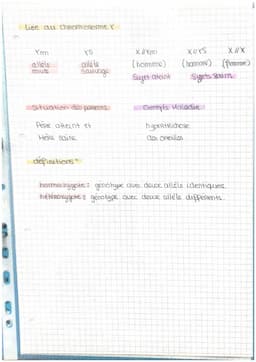 Liée au chromosome Y
Ym YS X//Ym X//YS X//X
allèle allèle (homme) (homme) (femme)
muté sauvage Sujet atteint Sujets sains
Situation des parents Exemple Maladie
Père atteint et hypertrichose
Mère saine des oreilles
définitions
homozygote : génotype avec deux allèle identiques
hétérozygote : génotype avec deux allèle différents.